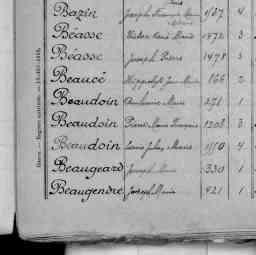 Bazin Joseph François Marie 1937 4
Béasse Victor René Marie 1472 3
Béasse Joseph Pierre 1478 3
Beaucé Hippolyte Jean Marie 166 2
Beaudoin Ambroise Marie 271 1
Beaudoin Pierre Marie François 1208 3
Beaudoin Louis Jules Marie 1110 4
Beaugeard Joseph Marie 330 1
Beaugendre Joseph Marie 421 1